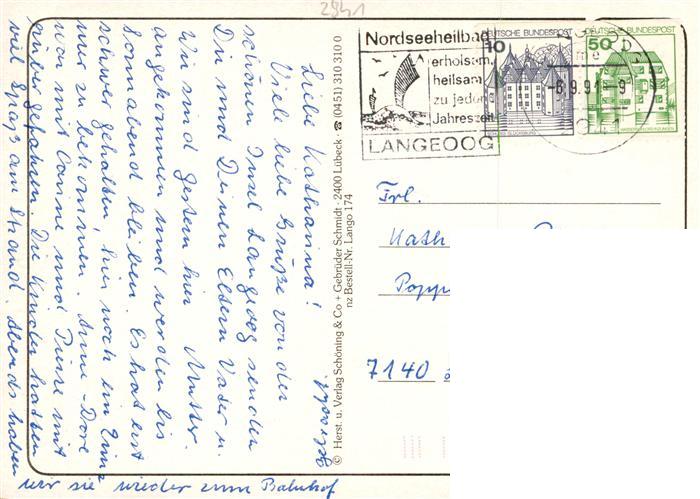 2941
Liebe Katharina!
Viele liebe Grüße von der
schönen Insel Langeoog senden
Dir und Deinen Eltern Vater u.
Mutter.
Wir sind gestern hier
angekommen und werden bis
Sonnabend bleiben. Es hat erst
schwer gehalten, hier noch ein Zim-
mer zu bekommen. Anne-Dore
war mit Janne und Pierre mit
rüber gefahren. Die Kinder hatten
viel Spaß am Strand. Abends haben
wir sie wieder zum Bahnhof
gebracht.
© Herst. u. Verlag Schöning & Co + Gebrüder Schmidt · 2400 Lübeck · ☎ (0451) 310 310 0
nz Bestell-Nr. Lango 174
Nordseeheilbad
erholsam,
heilsam
zu jeder
Jahreszeit
LANGEOOG
10
DEUTSCHE BUNDESPOST
50
DEUTSCHE BUNDESPOST
-6.9.91-9
Frl.
Kath
Popp
7140